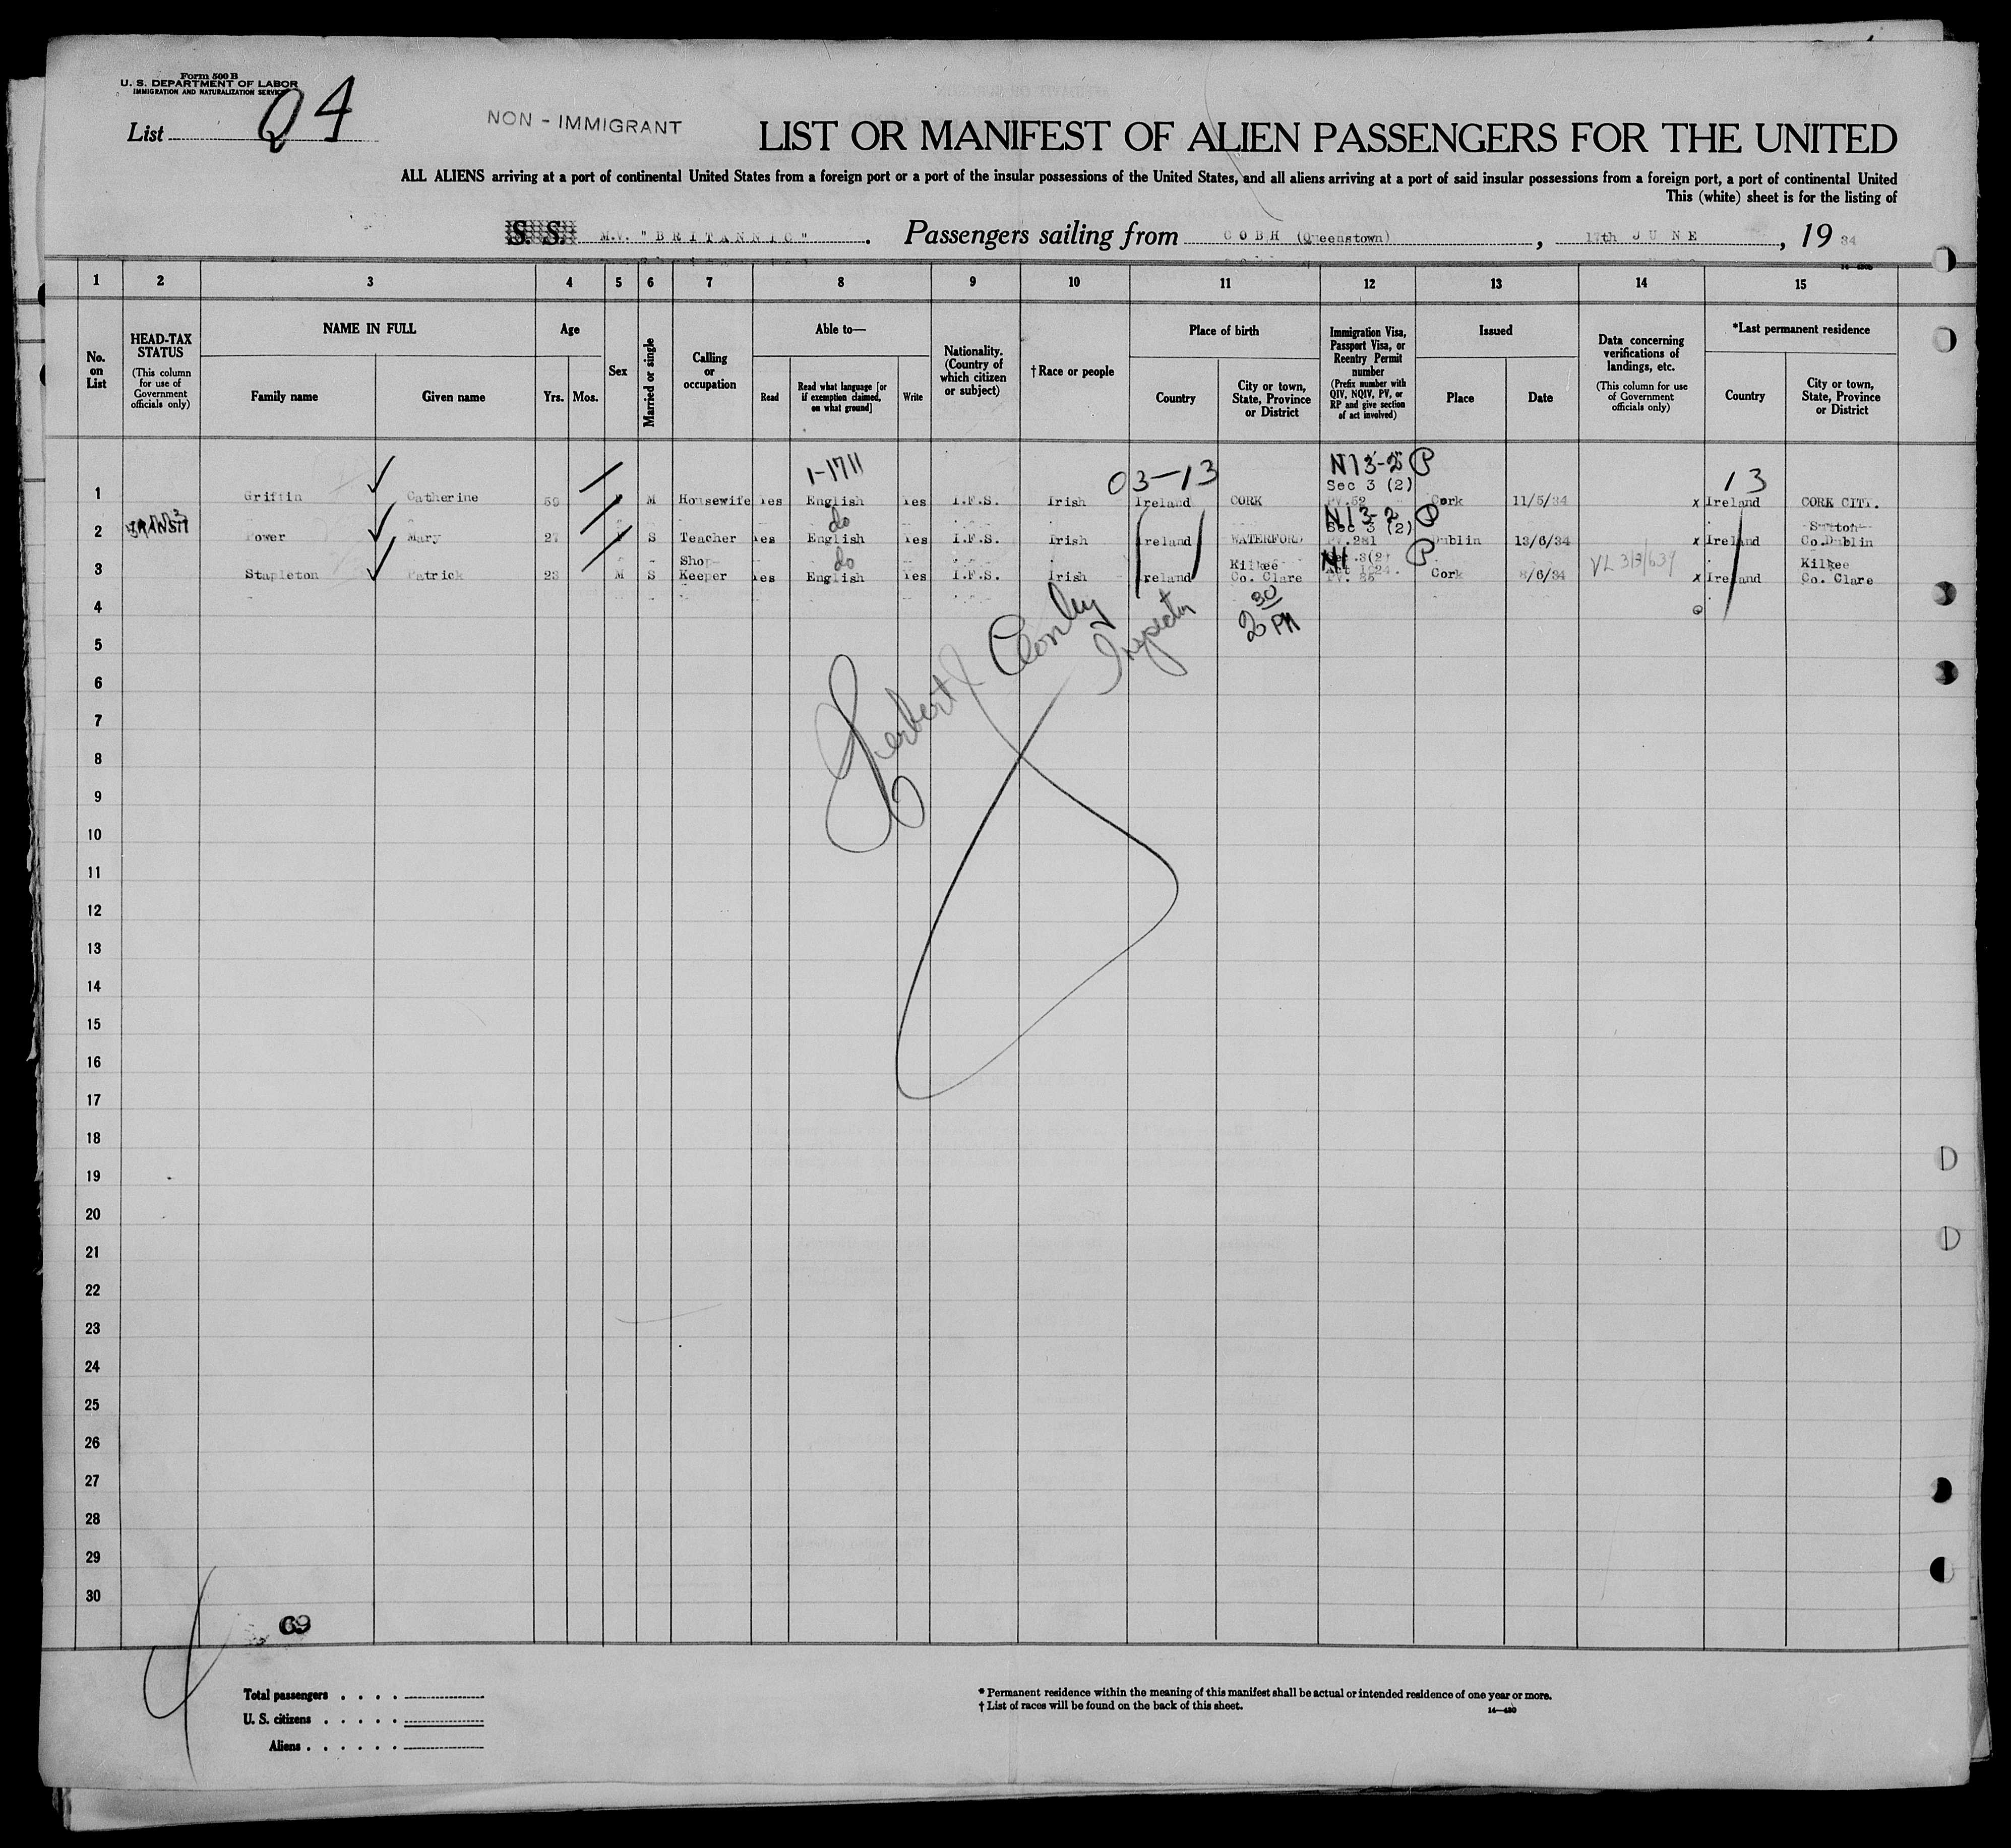 Form 500 B
U. S. DEPARTMENT OF LABOR
IMMIGRATION AND NATURALIZATION SERVICE
List 04
NON - IMMIGRANT
LIST OR MANIFEST OF ALIEN PASSENGERS FOR THE UNITED
ALL ALIENS arriving at a port of continental United States from a foreign port or a port of the insular possessions of the United States, and all aliens arriving at a port of said insular possessions from a foreign port, a port of continental United
This (white) sheet is for the listing of
S. S. M.V. "BRITANNIC". Passengers sailing from COBH (Queenstown), 17th JUNE, 19 34
1 2 3 4 5 6 7 8 9 10 11 12 13 14 15
No. on List
HEAD-TAX STATUS
(This column for use of Government officials only)
NAME IN FULL
Family name
Given name
Age
Yrs. Mos.
Sex
Married or single
Calling or occupation
Able to—
Read
Read what language [or if exemption claimed, on what ground]
Write
Nationality. (Country of which citizen or subject)
† Race or people
Place of birth
Country
City or town, State, Province or District
Immigration Visa, Passport Visa, or Reentry Permit number
(Prefix number with QIV, NQIV, PV, or RP and give section of act involved)
Issued
Place
Date
Data concerning verifications of landings, etc.
(This column for use of Government officials only)
*Last permanent residence
Country
City or town, State, Province or District
1-1711 03-13 N13-2 P 13
Sec 3 (2)
1 Griffin Catherine 59 M Housewife Yes English Yes I.F.S. Irish Ireland CORK PV.52 Cork 11/5/34 x Ireland CORK CITY.
TRANSIT do N13-2 P
Sec 3 (2) Sutton
2 Power Mary 27 F S Teacher Yes English Yes I.F.S. Irish Ireland WATERFORD PV.281 Dublin 13/6/34 x Ireland Co.Dublin
Shop do Kilkee N1 Sec.3(2) P Kilkee
Act 1924.
3 Stapleton Patrick 23 M S Keeper Yes English Yes I.F.S. Irish Ireland Co. Clare PV. 85 Cork 8/6/34 VL 313/639 x Ireland Co. Clare
2 30 PM
Herbert J Conley
Inspector
4
5
6
7
8
9
10
11
12
13
14
15
16
17
18
19
20
21
22
23
24
25
26
27
28
29
30
69
Total passengers
U. S. citizens
Aliens
* Permanent residence within the meaning of this manifest shall be actual or intended residence of one year or more.
† List of races will be found on the back of this sheet.
14—430